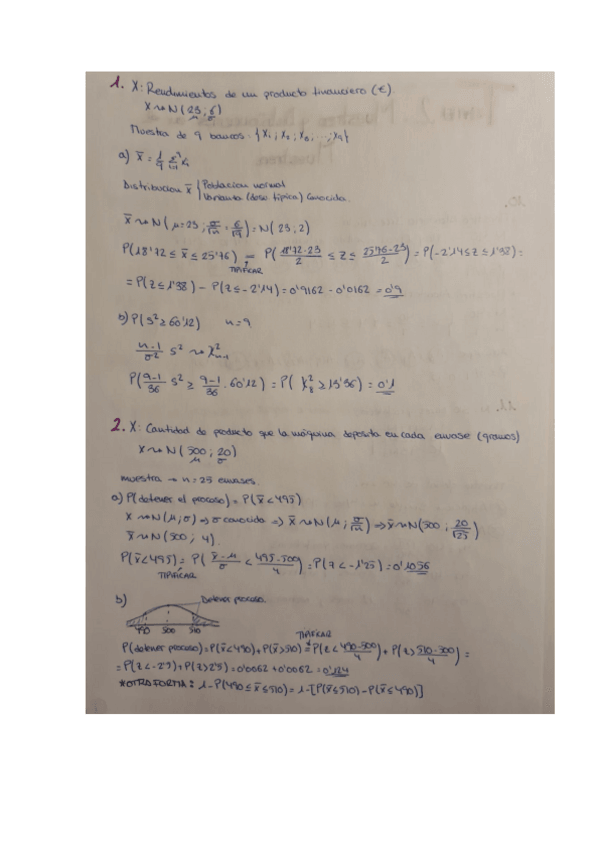 1. X: Rendimientos de un producto financiero (€)
X ~ N(23; 6)
μ σ
Muestra de 9 bancos. {X₁; X₂; X₃; ...; X₉}
a) X̄ = 1/9 Σ Xi
Distribución X̄ { Población normal
Varianza (desv. típica) Conocida.
X̄ ~ N(μ=23; σ/√n = 6/√9) = N(23; 2)
P(18'72 ≤ X̄ ≤ 25'76) = P(18'72-23/2 ≤ Z ≤ 25'76-23/2) = P(-2'14 ≤ Z ≤ 1'38) =
TIPIFICAR
= P(Z ≤ 1'38) - P(Z ≤ -2'14) = 0'9162 - 0'0162 = 0'9
b) P(S² ≥ 60'12) n=9
n-1/σ² S² ~ χ²n-1
P(9-1/36 S² ≥ 9-1/36 · 60'12) = P(χ²8 ≥ 13'36) = 0'1
2. X: Cantidad de producto que la máquina deposita en cada envase (gramos)
X ~ N(500; 20)
μ σ
muestra → n=25 envases.
a) P(detener el proceso) = P(X̄ < 495)
X ~ N(μ; σ) → σ conocida => X̄ ~ N(μ; σ/√n) => X̄ ~ N(500; 20/√25)
X̄ ~ N(500; 4).
P(X̄ < 495) = P(X̄-μ/σ < 495-500/4) = P(Z < -1'25) = 0'1056
TIPIFICAR
b) Detener proceso
490 500 510
TIPIFICAR
P(detener proceso) = P(X̄ < 490) + P(X̄ > 510) = P(Z < 490-500/4) + P(Z > 510-500/4) =
= P(Z < -2'5) + P(Z > 2'5) = 0'0062 + 0'0062 = 0'124
*OTRA FORMA: 1 - P(490 ≤ X̄ ≤ 510) = 1 - [P(X̄ ≤ 510) - P(X̄ ≤ 490)]